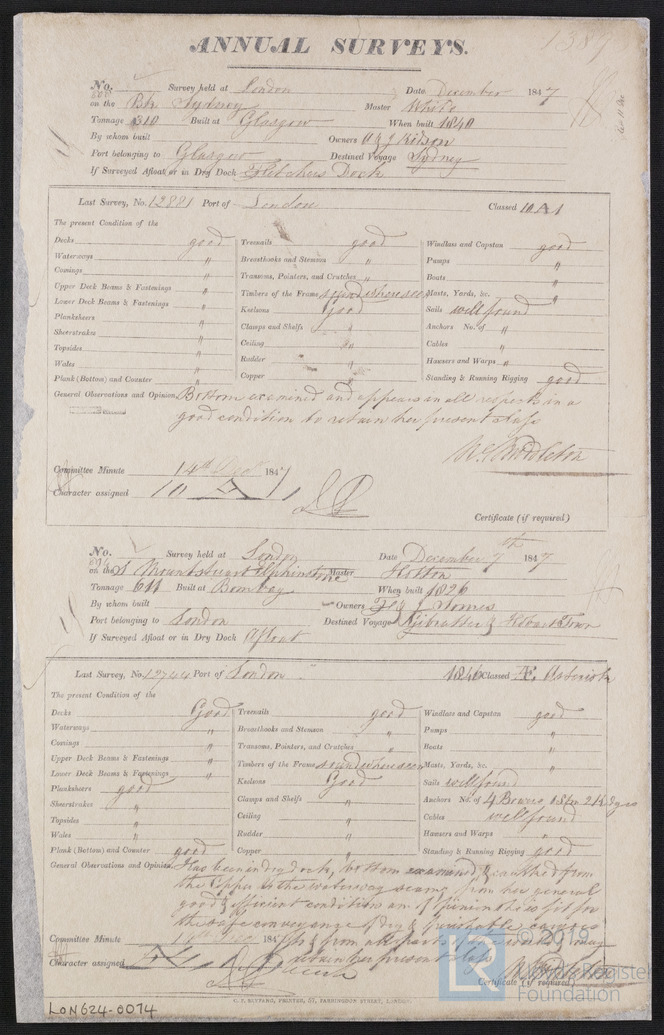 1389
ANNUAL SURVEYS.
No. Survey held at London Date December 1847
on the Bk. Sydney Master White
Tonnage 310 Built at Glasgow When built 1840
By whom built Owners A & J Ritson
Port belonging to Glasgow Destined Voyage Sydney
If Surveyed Afloat or in Dry Dock Fletchers Dock
Last Survey, No. 12881 Port of London Classed 10 A 1
The present Condition of the
Decks good Treenails good Windlass and Capstan good
Waterways " Breasthooks and Stemson " Pumps "
Comings " Transoms, Pointers, and Crutches " Boats "
Upper Deck Beams & Fastenings " Timbers of the Frame sound where seen Masts, Yards, &c. "
Lower Deck Beams & Fastenings " Keelsons Good Sails well found
Planksheers " Clamps and Shelfs " Anchors No. of "
Sheerstrakes " Ceiling " Cables "
Topsides " Rudder " Hawsers and Warps "
Wales " Copper " Standing & Running Rigging good
Plank (Bottom) and Counter "
General Observations and Opinion Bottom examined and appears in all respects in a
good condition to retain her present class
Committee Minute 14th Decr 1847
Character assigned 10 A 1
Certificate (if required)
No. Survey held at London Date December 7th 1847
on the S Mountstuart Elphinstone Master
Tonnage 611 Built at Bombay When built 1826
By whom built Owners & J Somes
Port belonging to London Destined Voyage Gibralter & Hobart Town
If Surveyed Afloat or in Dry Dock Afloat
Last Survey, No. 12744 Port of London 1846 Classed Æ Asterisk
The present Condition of the
Decks Good Treenails good Windlass and Capstan good
Waterways " Breasthooks and Stemson " Pumps "
Comings " Transoms, Pointers, and Crutches " Boats "
Upper Deck Beams & Fastenings " Timbers of the Frame sound where seen Masts, Yards, &c. "
Lower Deck Beams & Fastenings " Keelsons Good Sails well found
Planksheers good Clamps and Shelfs " Anchors No. of 4 Bowers 1 Strm 2 Kedges
Sheerstrakes " Ceiling " Cables well found
Topsides " Rudder " Hawsers and Warps "
Wales " Copper " Standing & Running Rigging good
Plank (Bottom) and Counter good
General Observations and Opinion Has been in dry dock, bottom examined & caulked from
the Copper to the waterway seams from her general
good & efficient condition am of opinion she is fit for
the safe conveyance of dry & perishable cargoes
Committee Minute 184 to & from all parts of the world & may
Character assigned retain her present class
Certificate (if required)
C. F. Seyfang, Printer, 57, Farringdon Street, London.
LON624-0074
LR
© 2019
Lloyd's Register
Foundation